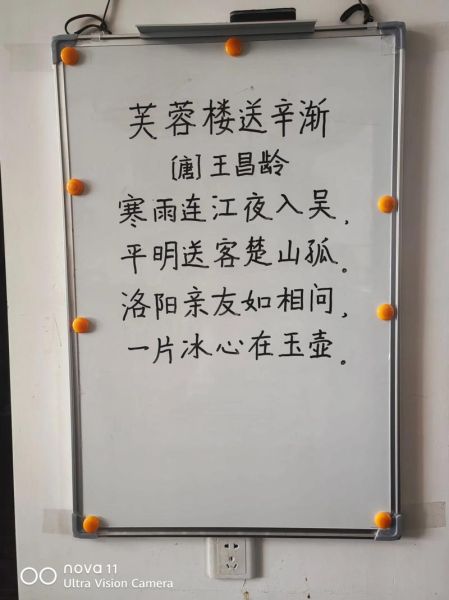 芙蓉楼送辛渐
[唐]王昌龄
寒雨连江夜入吴，
平明送客楚山孤。
洛阳亲友如相问，
一片冰心在玉壶。
nova 11
Ultra Vision Camera